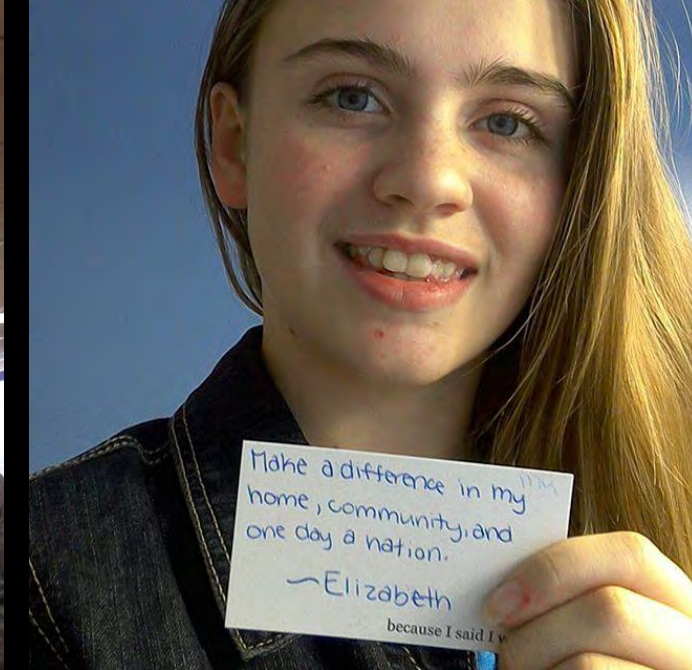 Make a difference in my
home, community, and
one day a nation.
~Elizabeth
because I said I